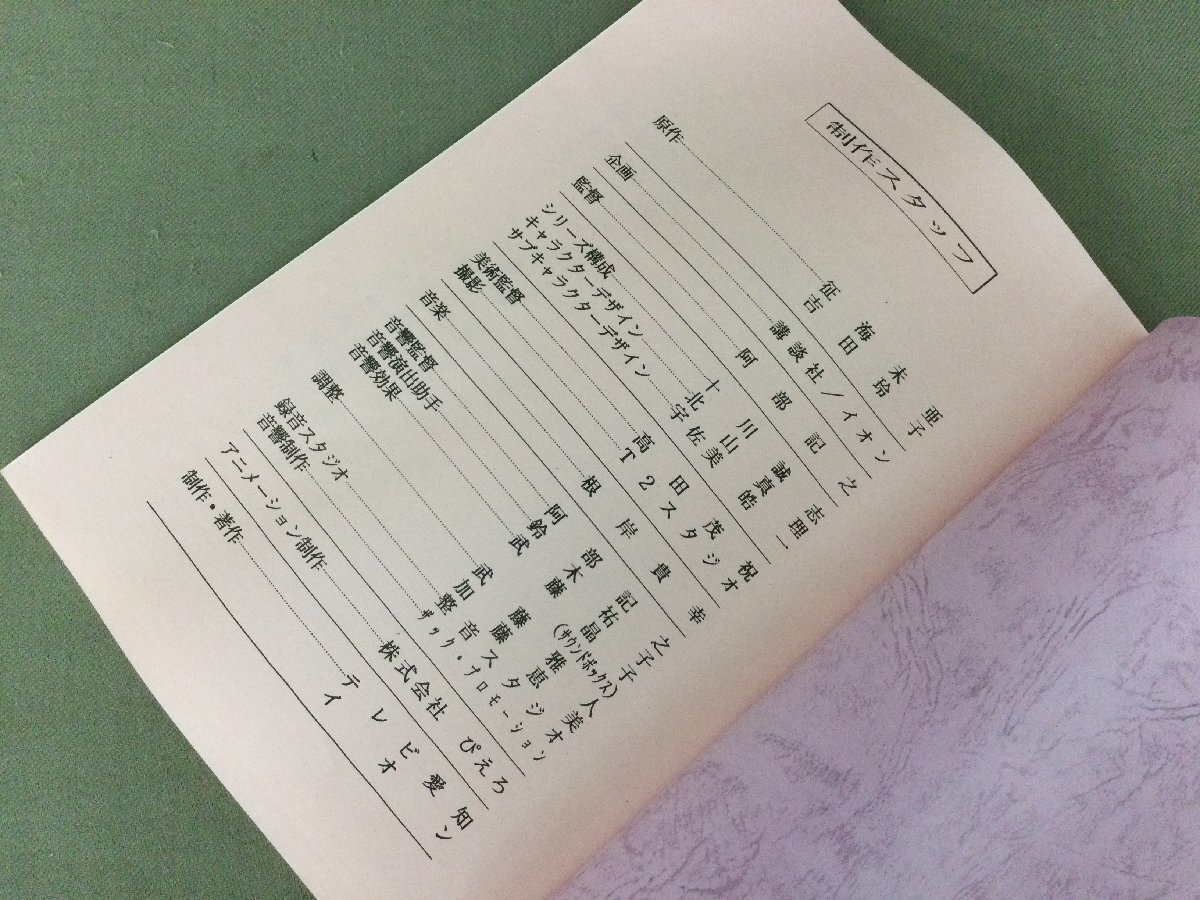 制作スタッフ
原作 征海未亜
吉田玲子
企画 講談社/イオン
監督 阿部記之
シリーズ構成 十川誠志
キャラクターデザイン 北山真理
サブキャラクターデザイン 宇佐美皓一
美術監督 高田茂祝
撮影 T2スタジオ
音楽 根岸貴幸
音響監督 阿部記之
音響演出助手 鈴木祐子
音響効果 武藤晶子
(サウンドボックス)
調整 武藤雅人
加藤恵美
録音スタジオ 整音スタジオ
音響制作 ザック・プロモーション
アニメーション制作 株式会社ぴえろ
制作・著作 テレビ愛知
イオン